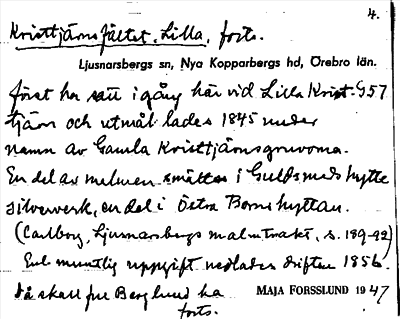 4.
Kristtjärnsfältet, Lilla, forts.
Ljusnarsbergs sn, Nya Kopparbergs hd, Örebro län.
först ha satt i gång här vid Lilla Krist- G57
tjärn och utmål lades 1845 under
namn av Gamla Kristtjärnsgruvorna.
En del av malmen smältes i Guldsmedshytte
silververk, en del i Östra Bornshyttan.
(Carlborg, Ljusnarsbergs malmtrakt, s. 189-92)
Enl. muntlig uppgift nedlades driften 1856.
Då skall fru Berglund ha
MAJA FORSSLUND 1947
forts.